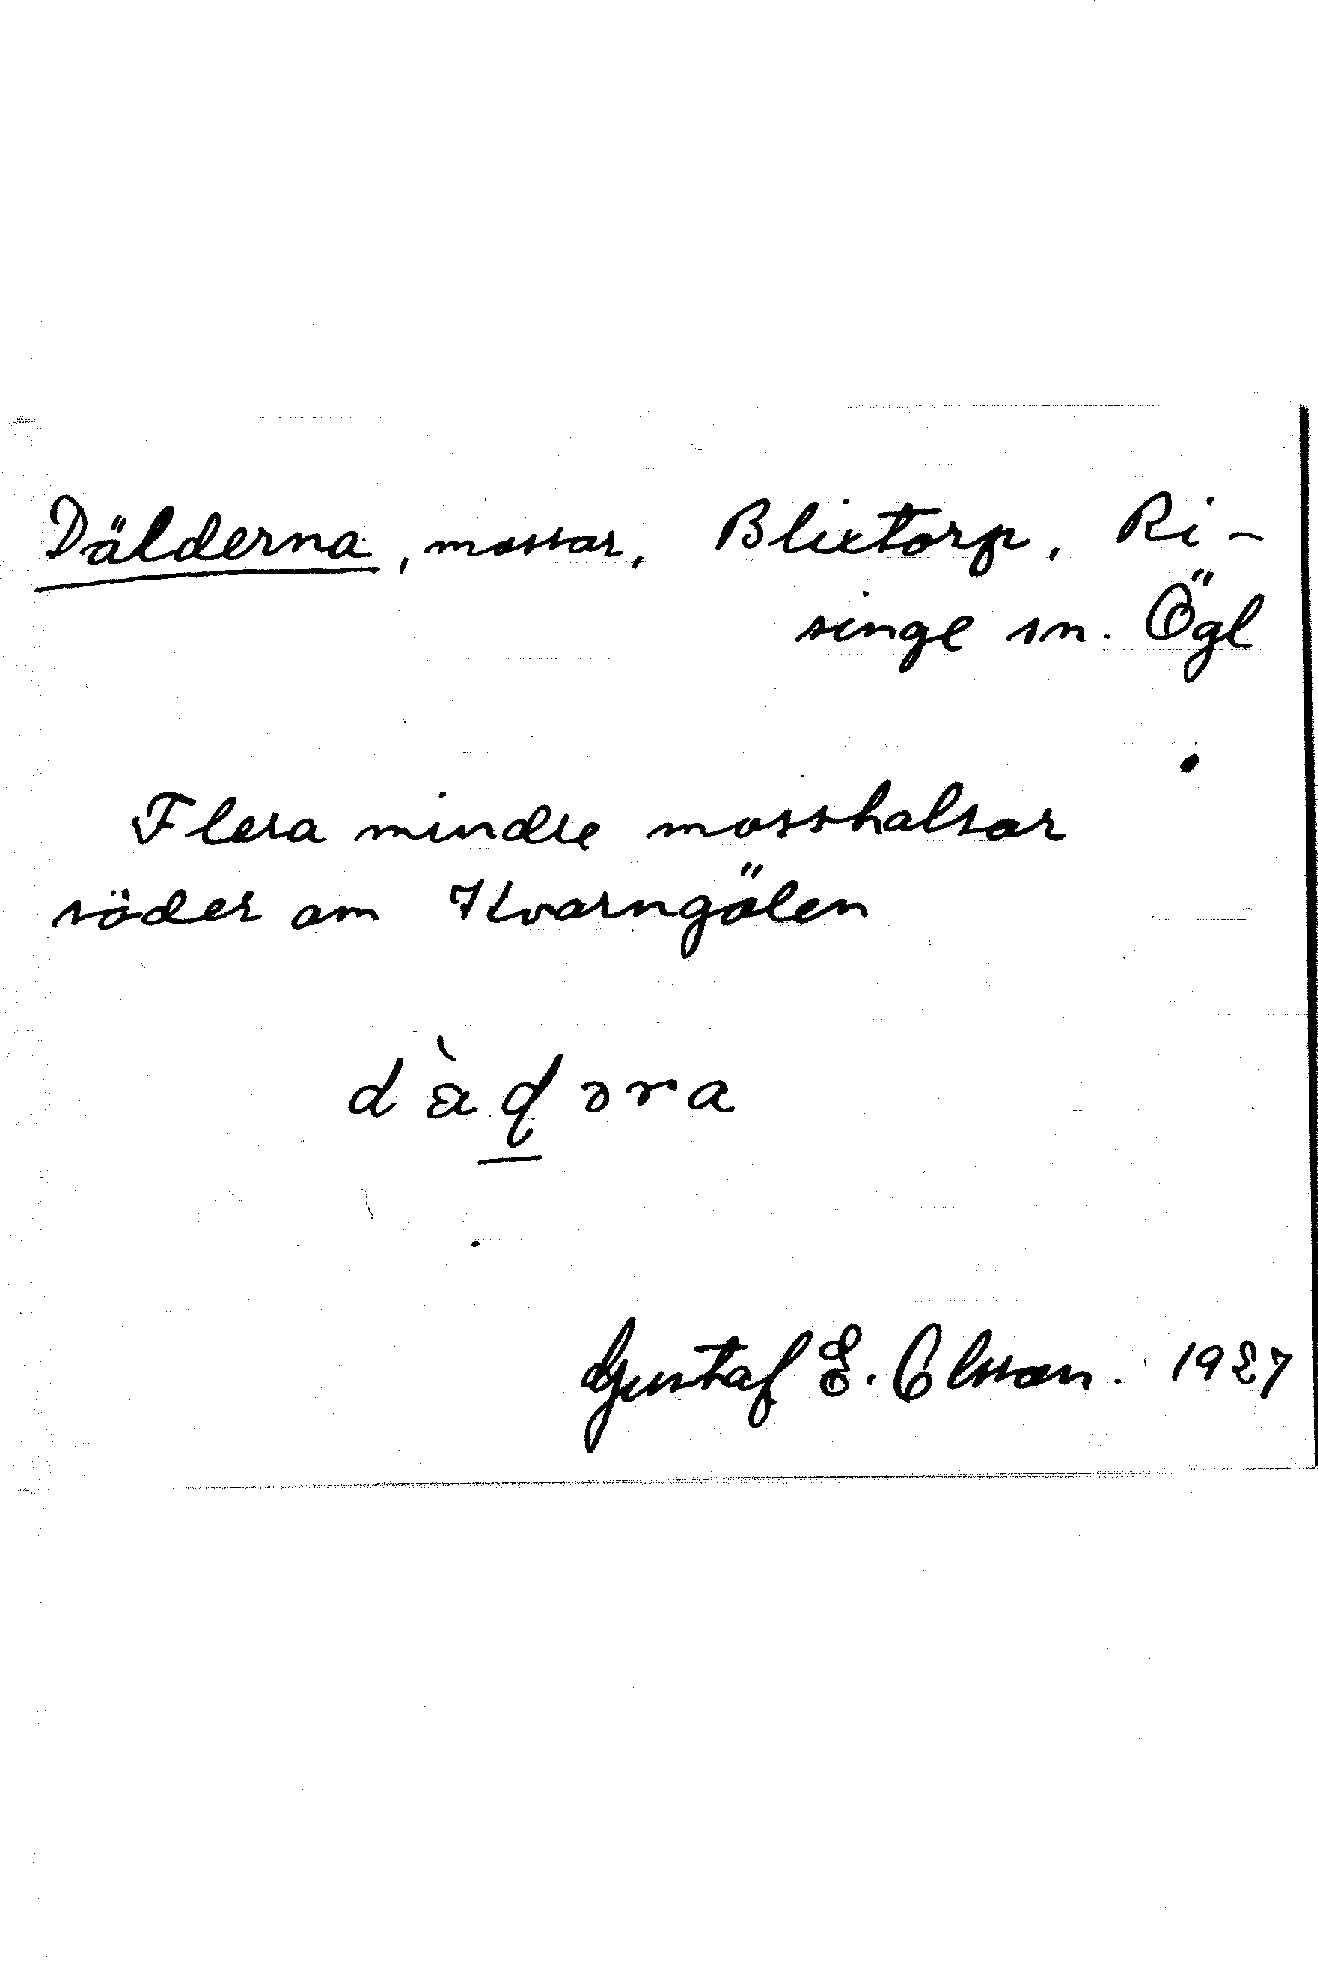 Dälderna, mossar, Blixtorp, Ri-
singe sn. Ögl
Flera mindre mosshalsar
söder om Kvarngölen
Gustaf E. Olsson. 1927